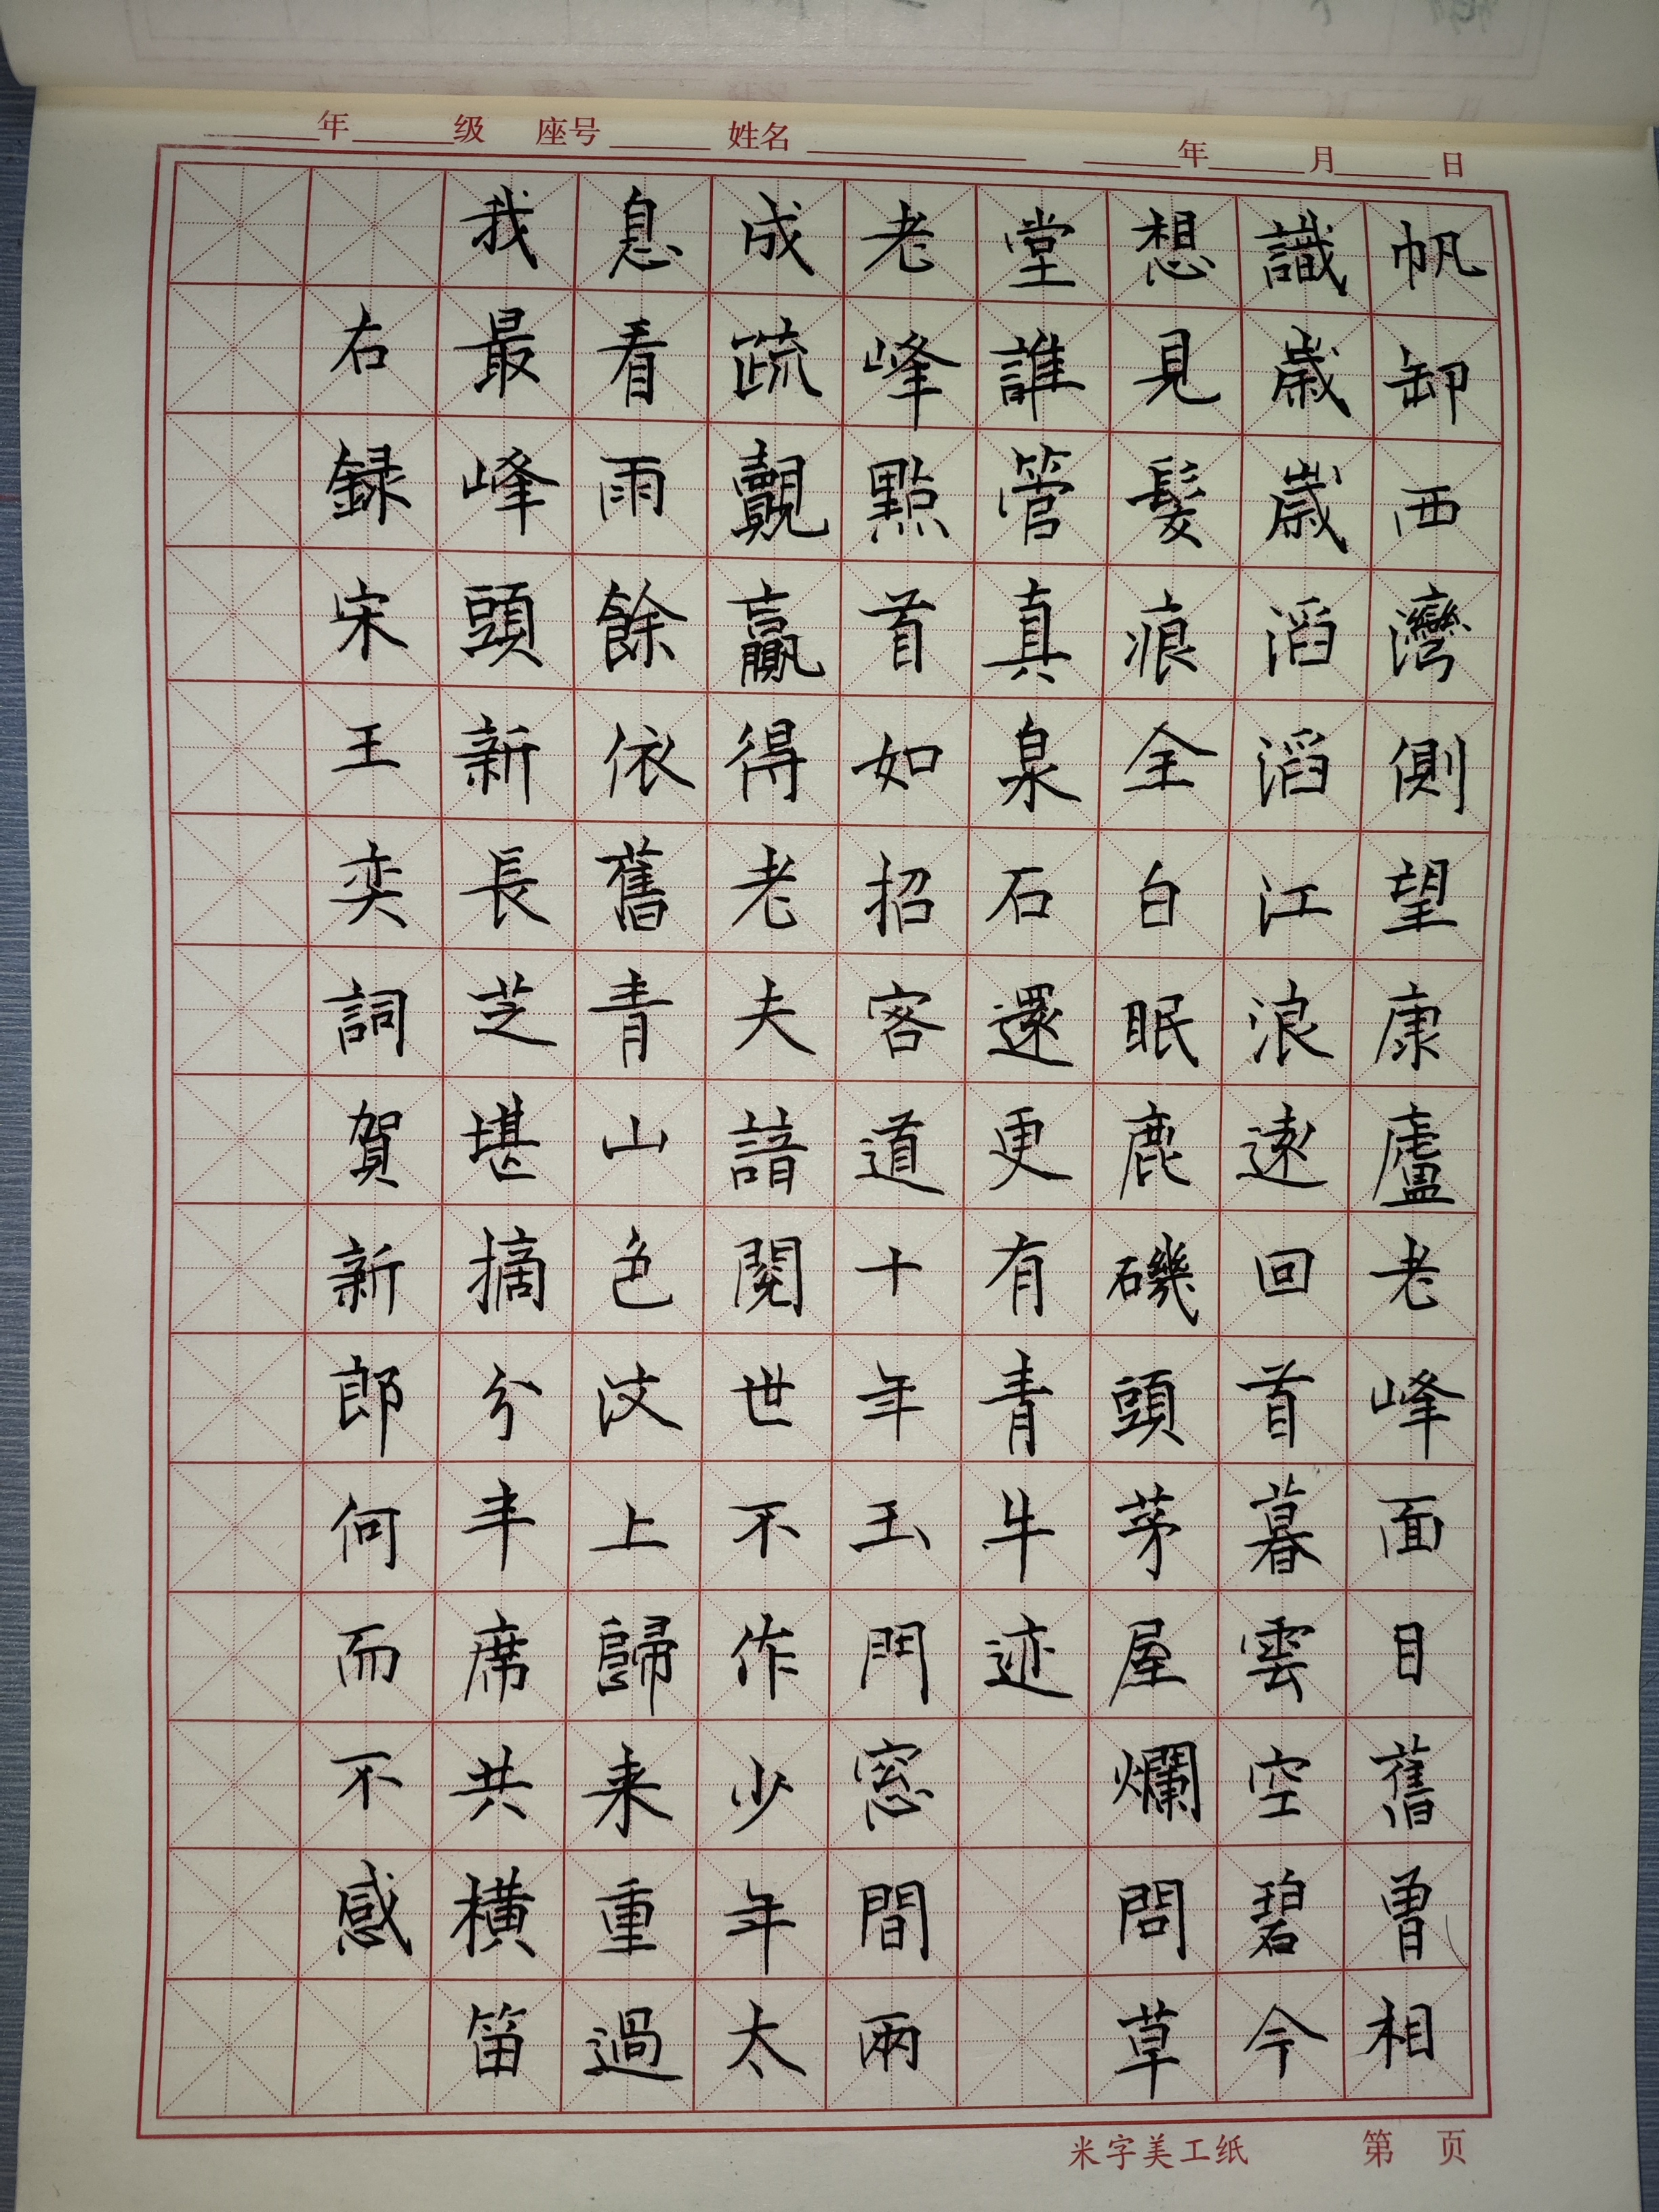 年 级 座号 姓名 年 月 日
帆卸西灣側望康廬老峰面目舊曾相
識歲歲滔滔江浪遠回首暮雲空碧今
想見髮痕全白眠鹿磯頭茅屋爛問草
堂誰管真泉石還更有青牛迹
老峰點首如招客道十年玉門窓間兩
成疏覿贏得老夫諳閱世不作少年太
息看雨餘依舊青山色汶上歸来重過
我最峰頭新長芝堪摘兮丰席共橫笛
右録宋王奕詞賀新郎何而不感
米字美工纸 第 页